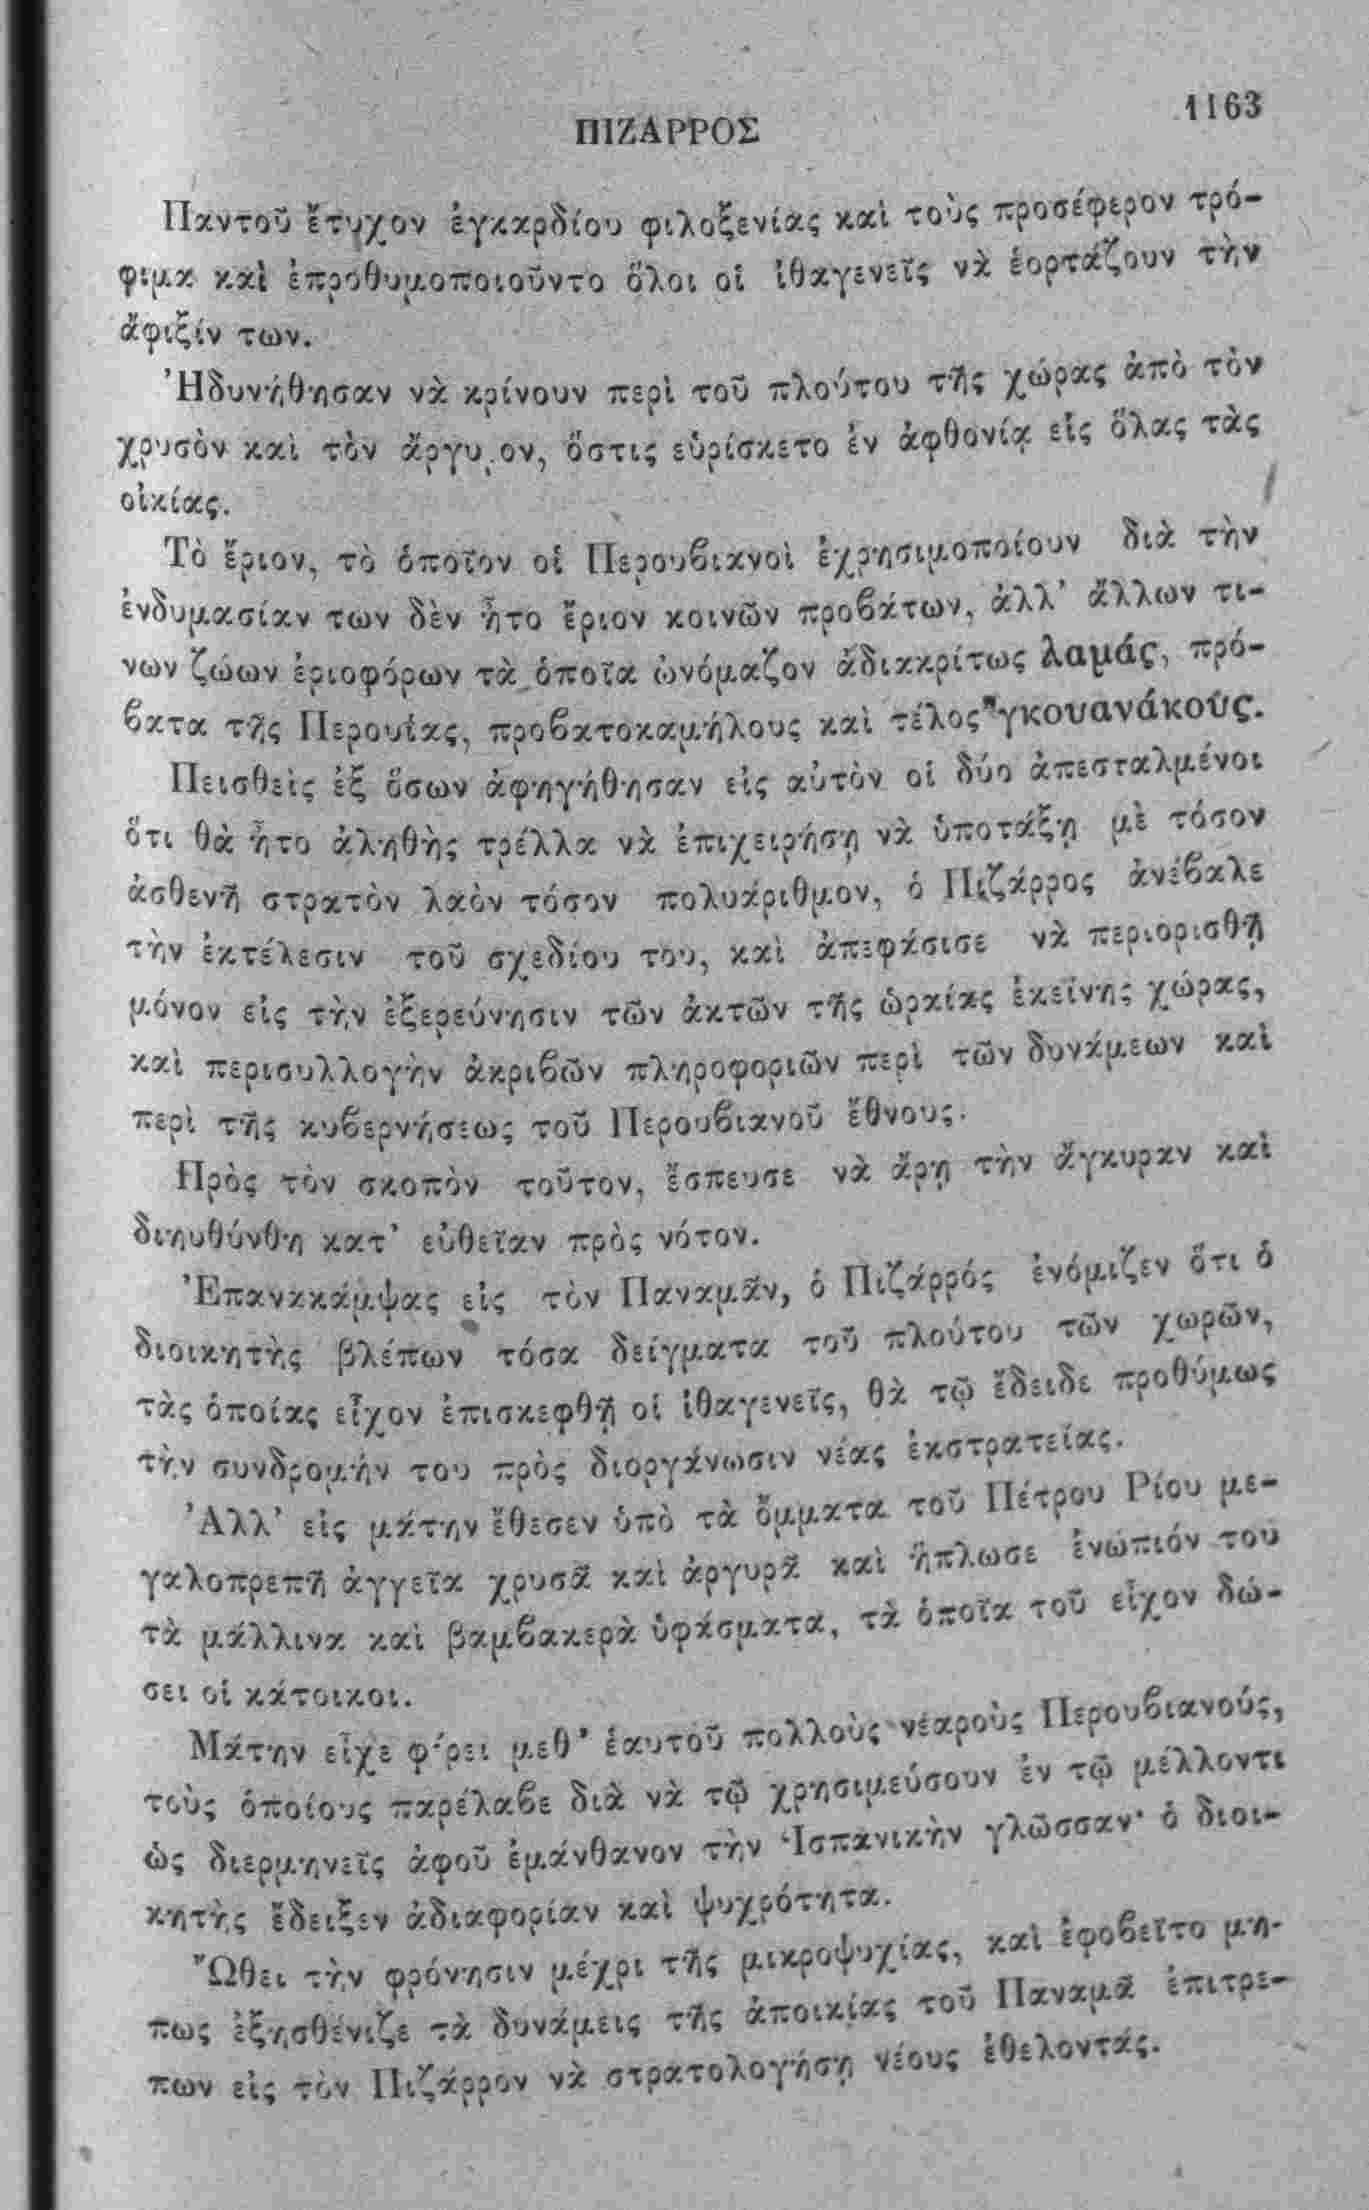 1163
ΠΙΖΑΡΡΟΣ
Παντοῦ ἔτυχον ἐγκαρδίου φιλοξενίας καὶ τοὺς προσέφερον τρό-
φιμα καὶ ἐπροθυμοποιοῦντο ὅλοι οἱ ἰθαγενεῖς νὰ ἑορτάζουν τὴν
ἄφιξίν των.
Ἠδυνήθησαν νὰ κρίνουν περὶ τοῦ πλούτου τῆς χώρας ἀπὸ τὸν
χρυσὸν καὶ τὸν ἄργυρον, ὅστις εὑρίσκετο ἐν ἀφθονίᾳ εἰς ὅλας τὰς
οἰκίας.
Τὸ ἔριον, τὸ ὁποῖον οἱ Περουβιανοὶ ἐχρησιμοποίουν διὰ τὴν
ἐνδυμασίαν των δὲν ἦτο ἔριον κοινῶν προβάτων, ἀλλ' ἄλλων τι-
νων ζώων ἐριοφόρων τὰ ὁποῖα ὠνόμαζον ἀδιακρίτως λαμάς, πρό-
βατα τῆς Περουΐας, προβατοκαμήλους καὶ τέλος γκουανάκους.
Πεισθεὶς ἐξ ὅσων ἀφηγήθησαν εἰς αὐτὸν οἱ δύο ἀπεσταλμένοι
ὅτι θὰ ἦτο ἀληθὴς τρέλλα νὰ ἐπιχειρήσῃ νὰ ὑποτάξῃ μὲ τόσον
ἀσθενῆ στρατὸν λαὸν τόσον πολυάριθμον, ὁ Πιζάρρος ἀνέβαλε
τὴν ἐκτέλεσιν τοῦ σχεδίου του, καὶ ἀπεφάσισε νὰ περιορισθῇ
μόνον εἰς τὴν ἐξερεύνησιν τῶν ἀκτῶν τῆς ὡραίας ἐκείνης χώρας,
καὶ περισυλλογὴν ἀκριβῶν πληροφοριῶν περὶ τῶν δυνάμεων καὶ
περὶ τῆς κυβερνήσεως τοῦ Περουβιανοῦ ἔθνους.
Πρὸς τὸν σκοπὸν τοῦτον, ἔσπευσε νὰ ἄρῃ τὴν ἄγκυραν καὶ
διηυθύνθη κατ' εὐθεῖαν πρὸς νότον.
Ἐπανακάμψας εἰς τὸν Παναμᾶν, ὁ Πιζάρρός ἐνόμιζεν ὅτι ὁ
διοικητὴς βλέπων τόσα δείγματα τοῦ πλούτου τῶν χωρῶν,
τὰς ὁποίας εἶχον ἐπισκεφθῇ οἱ ἰθαγενεῖς, θὰ τῷ ἔδειδε προθύμως
τὴν συνδρομήν του πρὸς διοργάνωσιν νέας ἐκστρατείας.
Ἀλλ' εἰς μάτην ἔθεσεν ὑπὸ τὰ ὄμματα τοῦ Πέτρου Ρίου με-
γαλοπρεπῆ ἀγγεῖα χρυσᾶ καὶ ἀργυρᾶ καὶ ἥπλωσε ἐνώπιόν του
τὰ μάλλινα καὶ βαμβακερὰ ὑφάσματα, τὰ ὁποῖα τοῦ εἶχον δώ-
σει οἱ κάτοικοι.
Μάτην εἶχε φέρει μεθ' ἑαυτοῦ πολλοὺς νέαροὺς Περουβιανούς,
τοὺς ὁποίους παρέλαβε διὰ νὰ τῷ χρησιμεύσουν ἐν τῷ μέλλοντι
ὡς διερμηνεῖς ἀφοῦ ἐμάνθανον τὴν Ἱσπανικὴν γλῶσσαν· ὁ διοι-
κητὴς ἔδειξεν ἀδιαφορίαν καὶ ψυχρότητα.
Ὤθει τὴν φρόνησιν μέχρι τῆς μικροψυχίας, καὶ ἐφοβεῖτο μή-
πως ἐξησθένιζε τὰ δυνάμεις τῆς ἀποικίας τοῦ Παναμᾶ ἐπιτρέ-
πων εἰς τὸν Πιζάρρον νὰ στρατολογήσῃ νέους ἐθελοντάς.